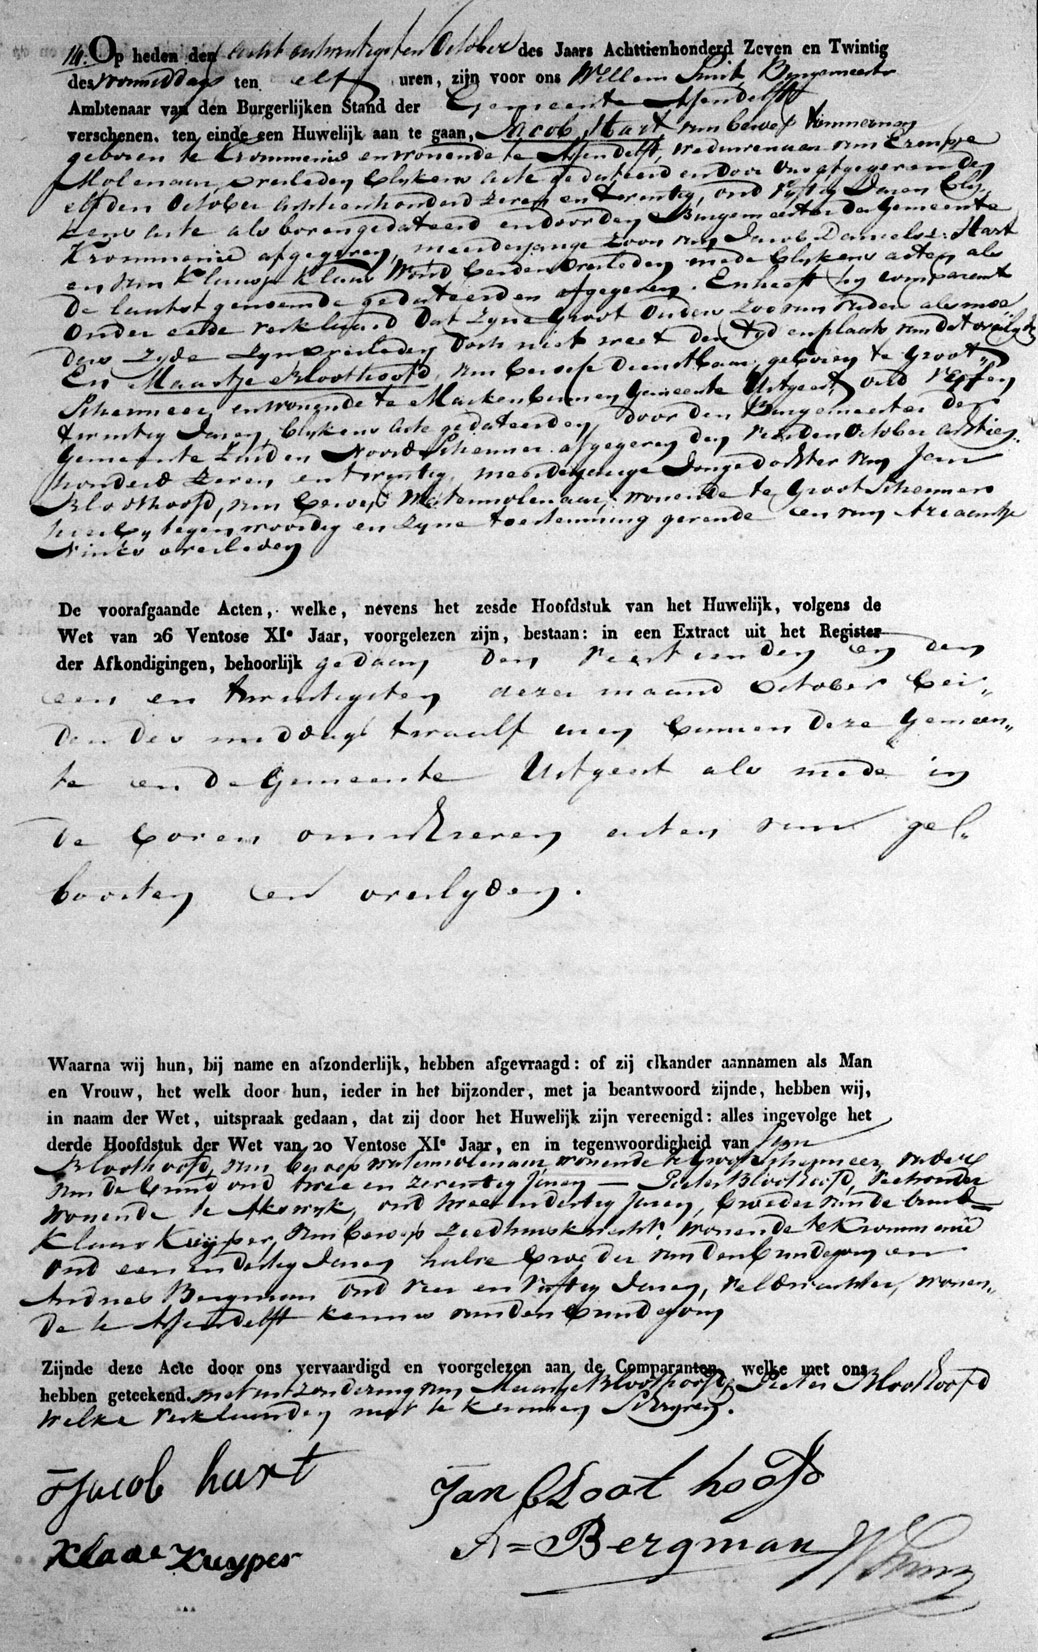 14. Op heden den acht entwintigsten October des Jaars Achttienhonderd Zeven en Twintig
des voormiddags ten elf uren, zijn voor ons Willem Smit Burgemeester
Ambtenaar van den Burgerlijken Stand der Gemeente Assendelft
verschenen, ten einde een Huwelijk aan te gaan, Jacob Hart van beroep timmerman
geboren te Crommenie en wonende te Assendelft, weduwenaar van
Molenaar, overleden blykens acte gedateerd en door ons afgegeven den
elfden October achtienhonderd zeven en twintig, oud vyftig Jaren bly
kens acte als boven gedateerd en door den Burgemeester der Gemeente
Krommenie afgegeven, meerderjarige zoon van Jacob Danielsz. Hart
en van Klaasje Klaas beiden overleden mede blykens acten als
de laatst genoemde gedateerd en afgegeven. En heeft hy comparant
onder eede verklaard dat zyne Groot Ouders zoo van vaders als moe
ders zyde zyn overleden doch niet weet den tyd en plaats van dat overlyden
En Maartje Kloothoofd, van beroep dienstbaar, geboren te Groot
Schermeer, en wonende te Markenbinnen Gemeente Uitgeest oud
twintig Jaren, blykens acte gedateerd en door den Burgemeester der
Gemeente Zuid en Noord Schermer afgegeven den October achtien
honderd zeven en twintig, meerderjarige Jongedochter van Jan
Kloothoofd, van beroep Watermolenaar, wonende te Groot Schermer
hierby tegenwoordig en zyne toestemming gevende en van Ariaantje
overleden
De voorafgaande Acten, welke, nevens het zesde Hoofdstuk van het Huwelijk, volgens de
Wet van 26 Ventose XIe Jaar, voorgelezen zijn, bestaan: in een Extract uit het Register
der Afkondigingen, behoorlijk gedaan den veertienden en den
een en twintigsten dezer maand October bei„
den des middags twaalf uren binnen deze Gemeen„
te en de Gemeente Uitgeest als mede in
de boven omschreven acten van ge„
boorten en overlyden.
Waarna wij hun, bij name en afzonderlijk, hebben afgevraagd: of zij elkander aannamen als Man
en Vrouw, het welk door hun, ieder in het bijzonder, met ja beantwoord zijnde, hebben wij,
in naam der Wet, uitspraak gedaan, dat zij door het Huwelijk zijn vereenigd: alles ingevolge het
derde Hoofdstuk der Wet van 20 Ventose XIe Jaar, en in tegenwoordigheid van Jan
Kloothoofd, van beroep watermolenaar wonende te Groot Schermeer, vader
van de bruid oud twee en zeventig Jaren — Pieter Kloothoofd, veehouder
wonende te Akswyk, oud twee en dertig Jaren, broeder van de bruid
Klaas Kuyper, van beroep wonende te Krommenie
oud een en dertig Jaren halve broeder van den bruidegom en
Andries Bergman oud vier en vyftig Jaren, veldwachter, wonen„
de te Assendelft kennis van den bruidegom
Zijnde deze Acte door ons vervaardigd en voorgelezen aan de Comparanten, welke met ons
hebben geteekend, met uitzondering van Maartje Kloothoofd, Pieter Kloothoofd
welke verklaarden niet te kunnen schryven.
Jacob hart
Jan Cloothoofd
Klaas Kuyper
A = Bergman
W Smit